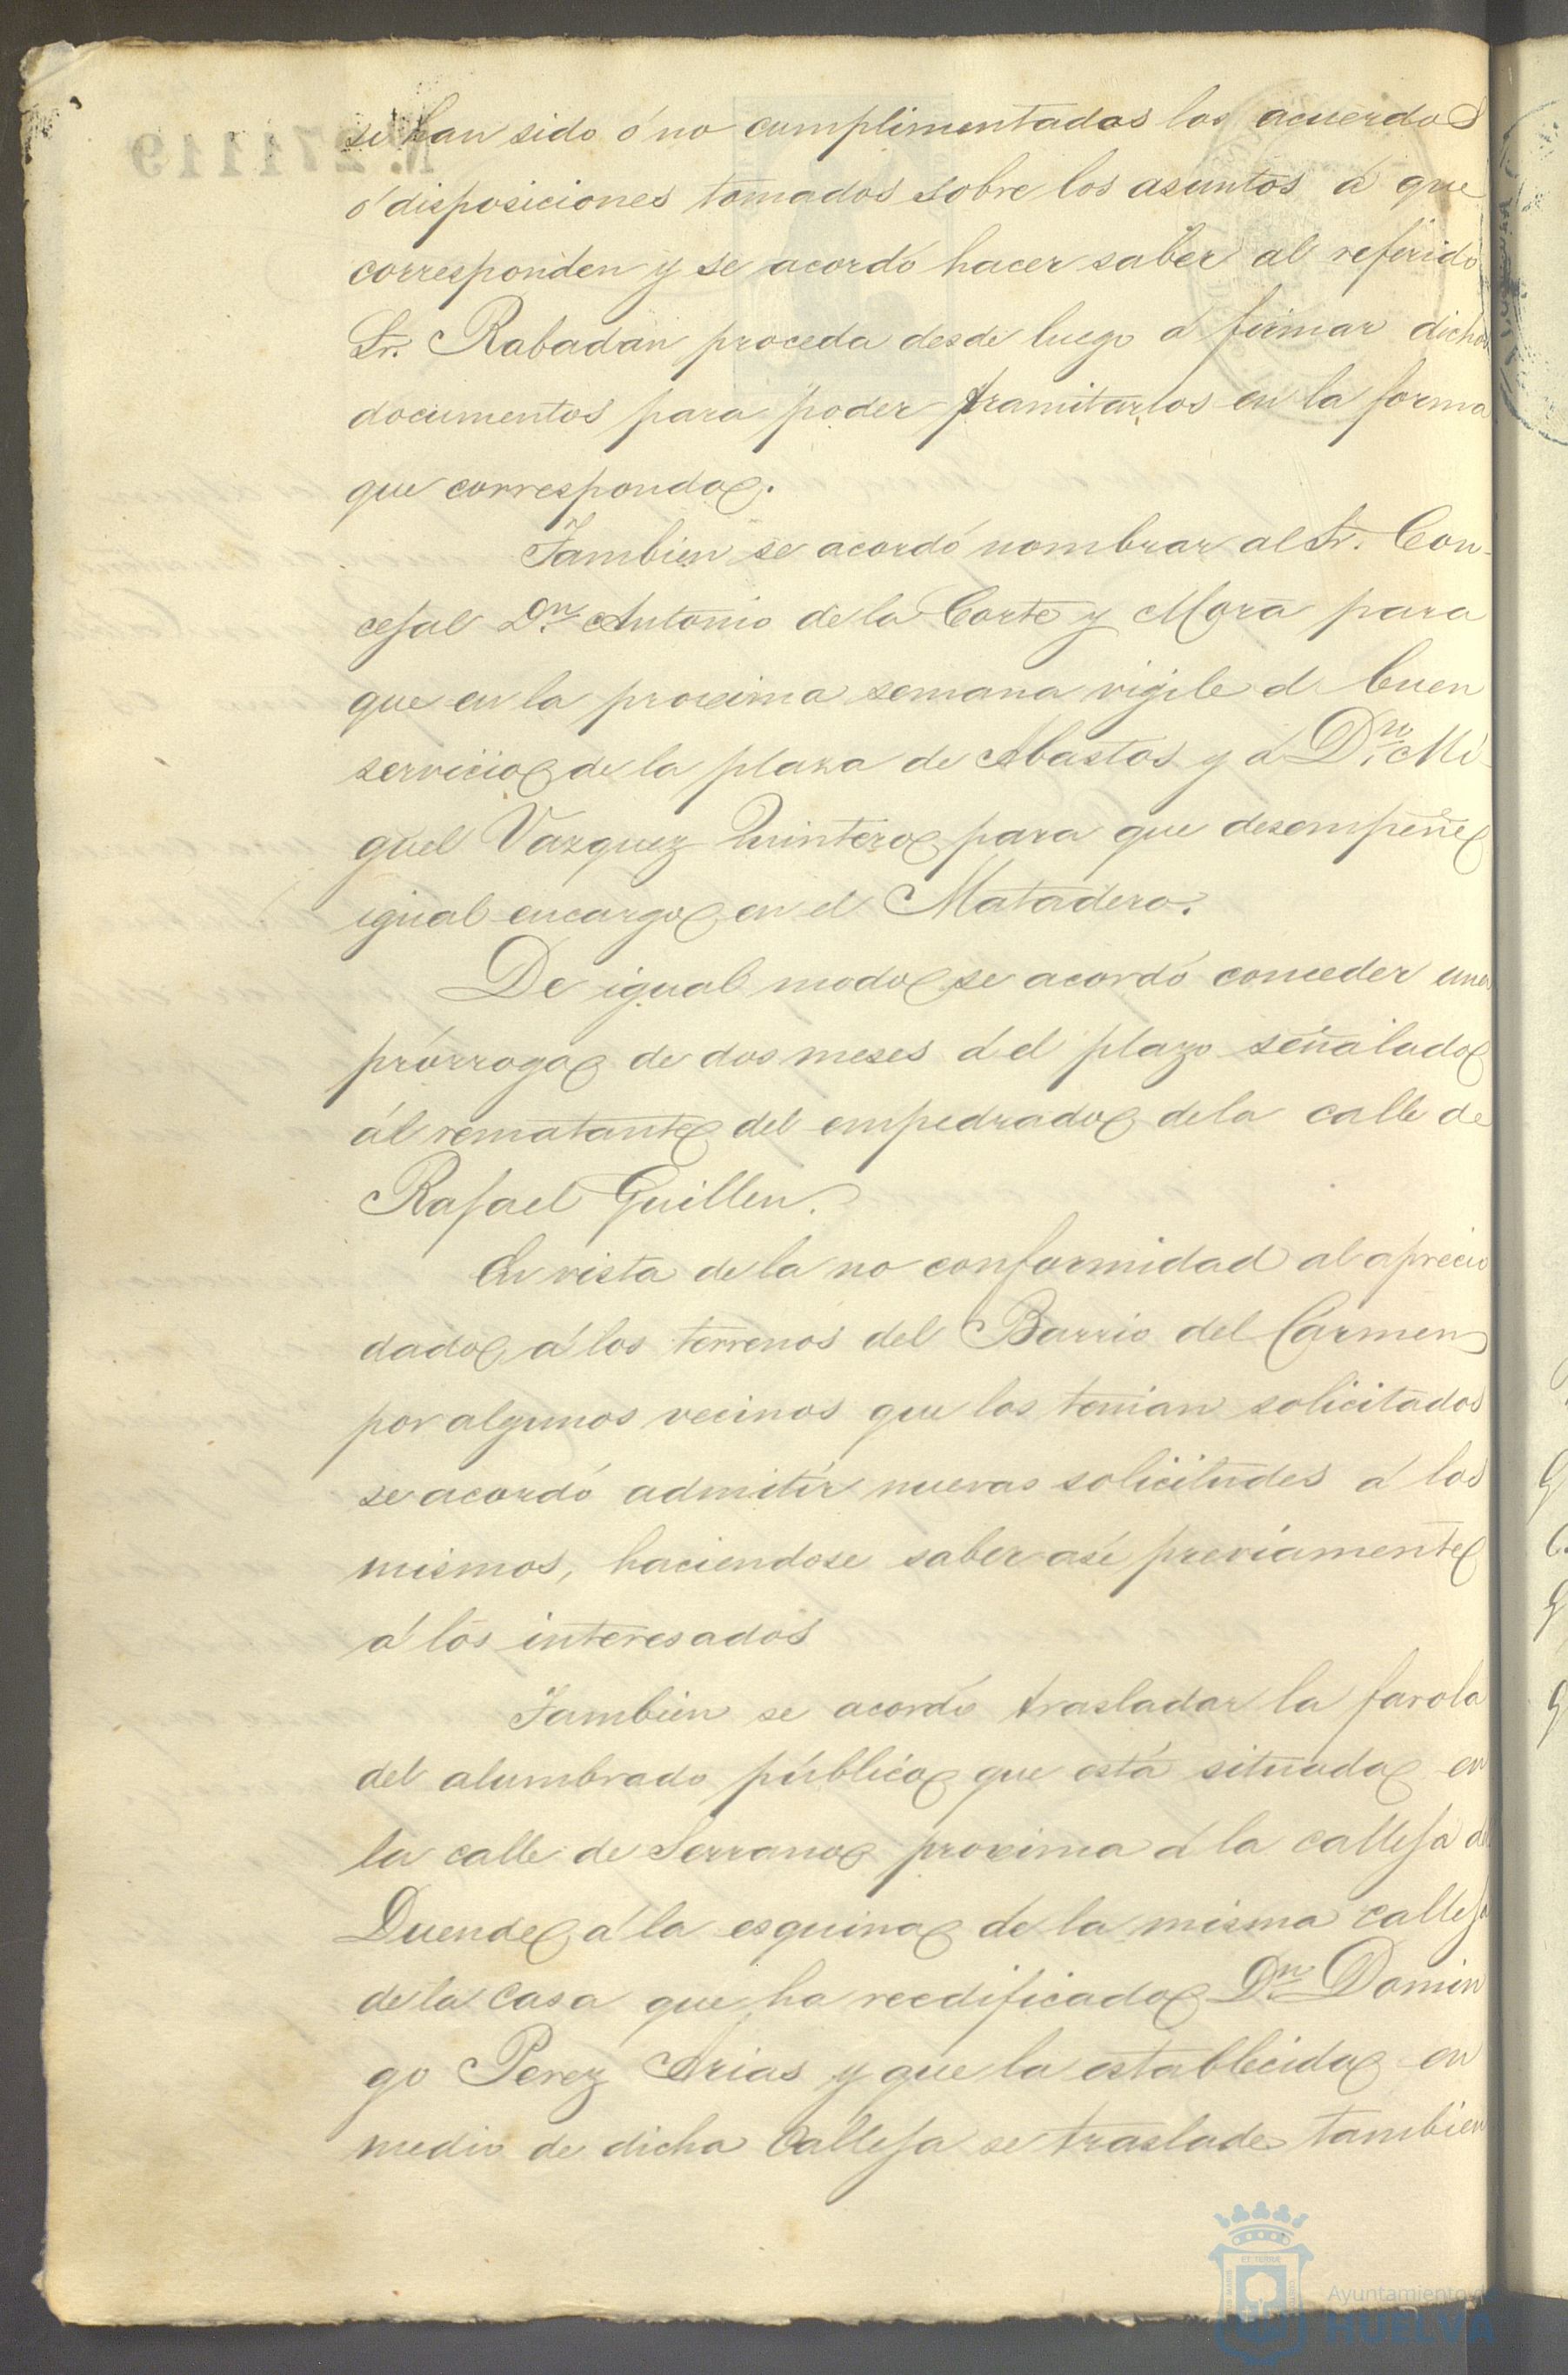 si han sido ó no cumplimentados los acuerdos
ó disposiciones tomados sobre los asuntos á que
corresponden y se acordó hacer saber al referido
Sr. Rabadan proceda desde luego á firmar dichos
documentos para poder tramitarlos en la forma
que corresponda.
Tambien se acordó nombrar al Sr. Con-
cejal Dn. Antonio de la Corte y Mora para
que en la proxima semana vigile el buen
servicio de la plaza de Abastos y á Dn. Mi-
guel Vazquez Quintero para que desempeñe
igual encargo en el Matadero.
De igual modo se acordó conceder una
prórroga de dos meses á el plazo señalado
ál rematante del empedrado de la calle de
Rafael Guillen.
En vista de la no conformidad al aprecio
dado á los terrenos del Barrio del Carmen
por algunos vecinos que los tenian solicitados
se acordó admitir nuevas solicitudes á los
mismos, haciendose saber asi previamente
á los interesados
Tambien se acordó trasladar la farola
del alumbrado público que está situada en
la calle de Serrano proxima á la calleja del
Duende á la esquina de la misma calleja
de la casa que ha reedificado Dn. Domin
go Perez Arias y que la establecida en
medio de dicha Calleja se traslade tambien
Nº 271119
Ayuntamiento de
HUELVA